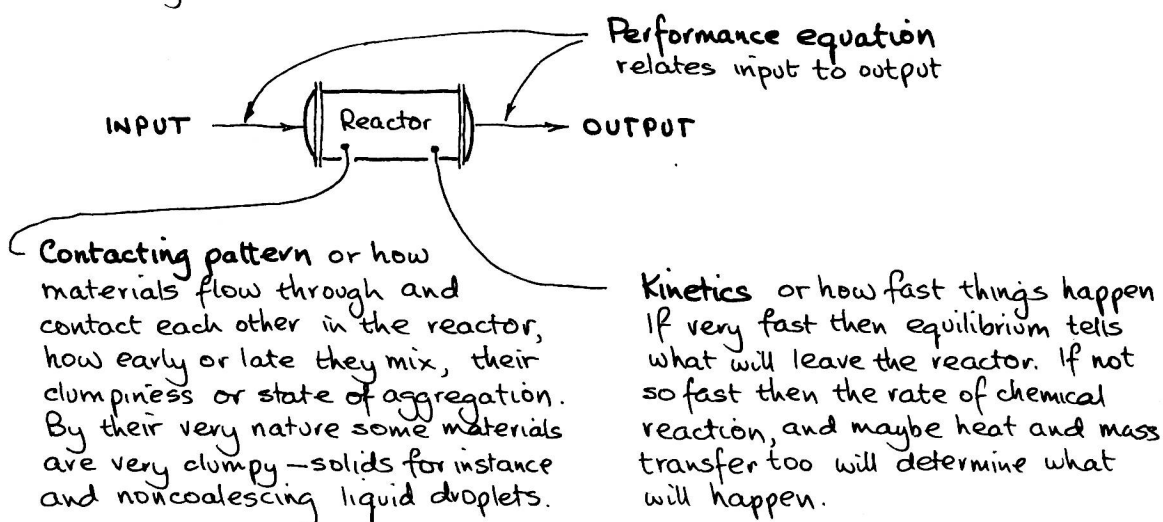 Performance equation
relates input to output
INPUT
Reactor
OUTPUT
Contacting pattern or how
materials flow through and
contact each other in the reactor,
how early or late they mix, their
clumpiness or state of aggregation.
By their very nature some materials
are very clumpy—solids for instance
and noncoalescing liquid droplets.
Kinetics or how fast things happen
If very fast then equilibrium tells
what will leave the reactor. If not
so fast then the rate of chemical
reaction, and maybe heat and mass
transfer too will determine what
will happen.